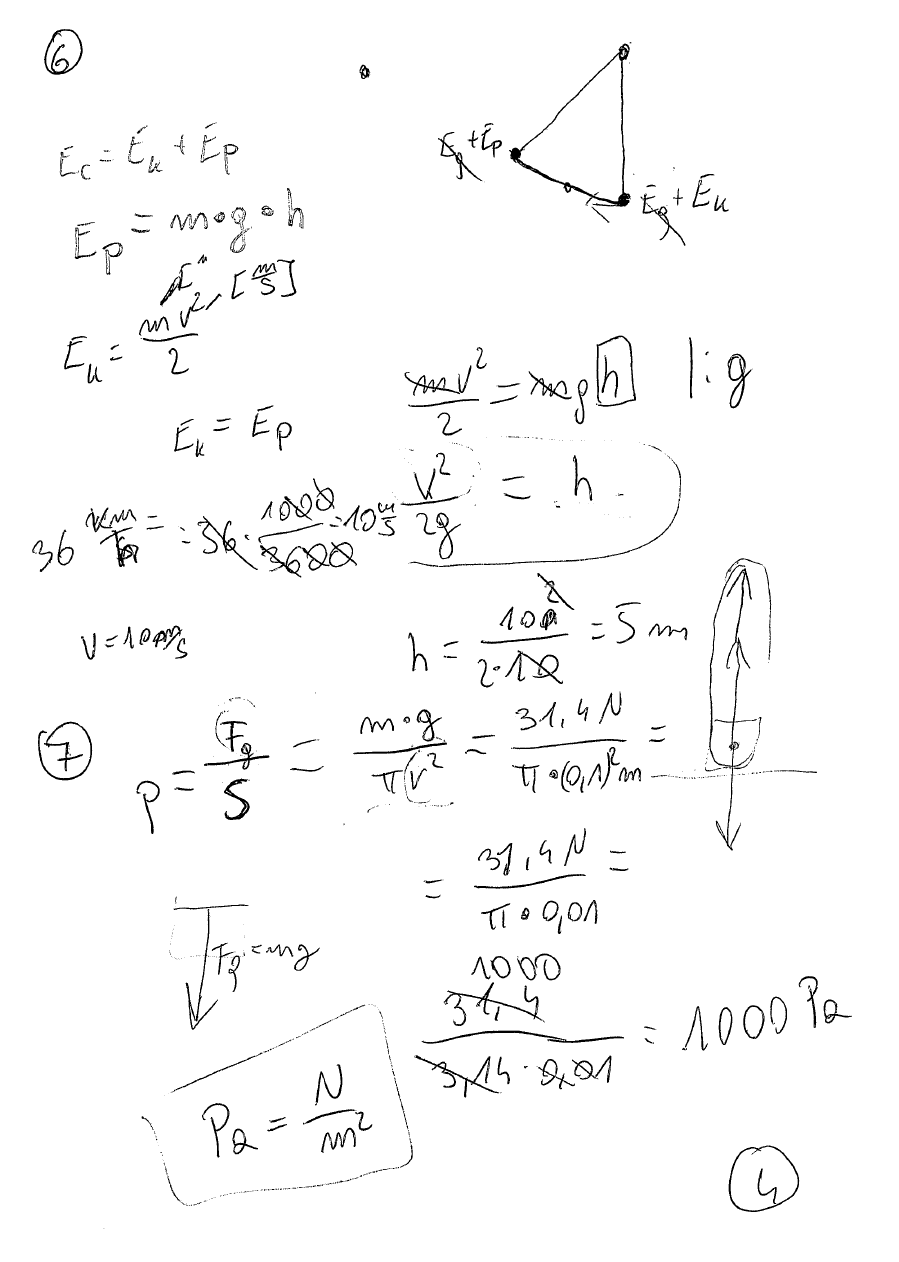 6
E_c = E_k + E_p
E_p = m·g·h
[m/s]
E_k = mv²/2
E_k = E_p
E_g + E_p
E_g + E_k
mv²/2 = mgh |:g
v²/2g = h
36 km/h = = 36 · 1000/3600 = 10 m/s
v = 10 m/s
h = 100/2·10 = 5 m
7
p = F_g/S = m·g/πr² = 31,4 N/π·(0,1)² m =
= 31,4 N/π·0,01 =
F_g = mg
1000
31,4/3,14·0,01 = 1000 Pa
Pa = N/m²
4